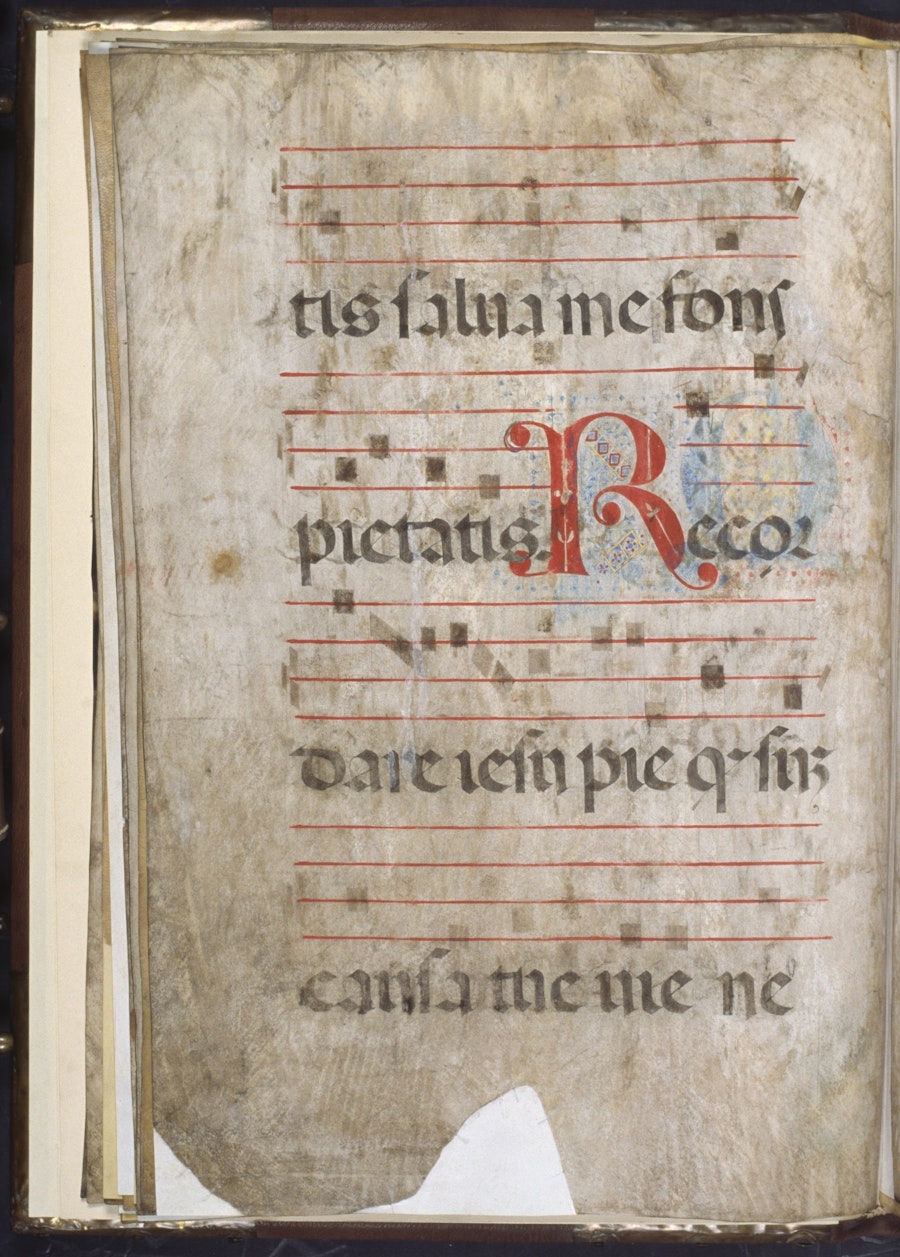 tis salua me fons
pietatis. Recor
dare iesu pie q' sum
causa tue uie ne